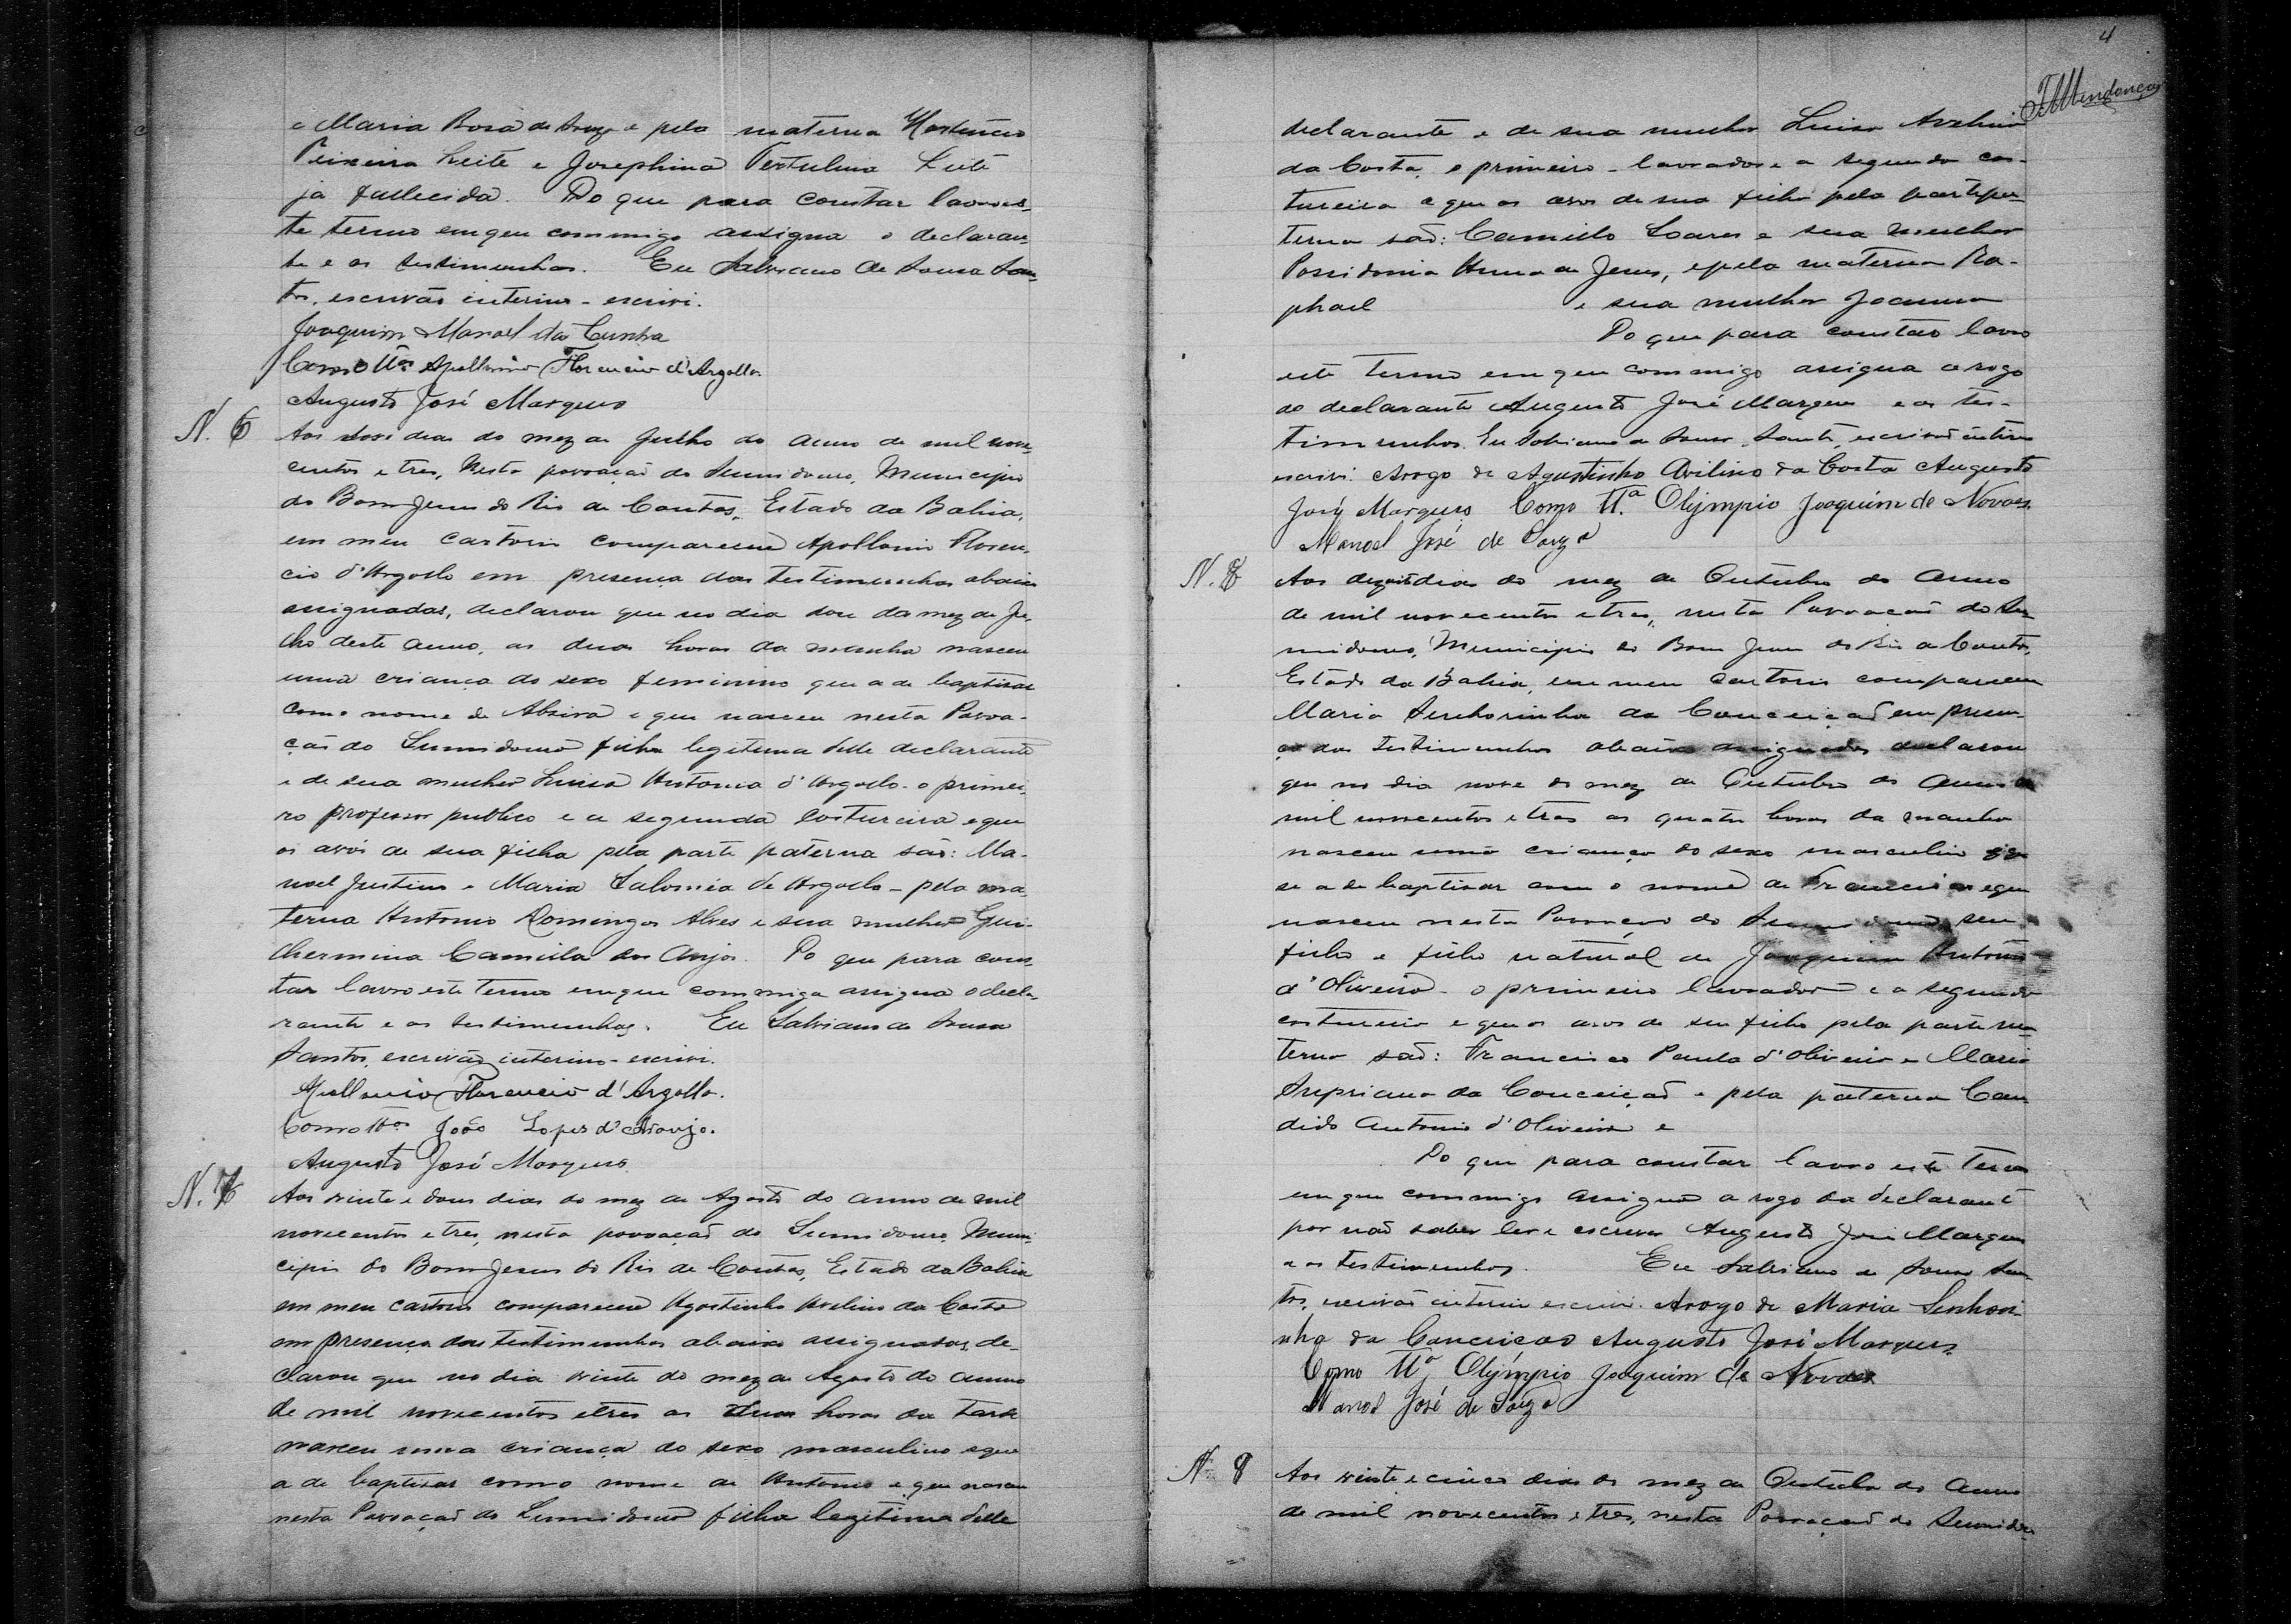 e Maria Rosa de Souza e pela materna Hortencio
Teixeira Leite e Josephina Tertulina Leite
já fallecida. Do que para constar lavro es-
te termo em que commigo assigna o declaran-
te e as testimunhas. Eu Salviano de Sousa San-
tos, escrivão interino - escrivi.
Joaquim Manoel da Cunha
Como ttas Apollonio Florencio d'Argollo.
Augusto José Marques
N. 6 Aos dose dias do mez de Julho do anno de mil nove-
centos e tres, nesta povoação do Sumidouro, Municipio
do Bom Jesus do Rio de Contas, Estado da Bahia,
em meu cartorio compareceu Apollonio Floren-
cio d'Argollo em presença das testimunhas abaixo
assignadas, declarou que no dia dose do mez de Ju-
lho deste anno, as duas horas da manha nasceu
uma criança do sexo feminino que a de baptisar
com o nome de e que nasceu nesta Povoa-
ção do Sumidouro filha legitima delle declarante
e de sua mulher Luisa Antonia d'Argollo - o primei-
ro professor publico e a segunda costureira e que
os avós de sua filha pela parte paterna são: Ma-
noel Justino e Maria Saloméa de Argollo - pela ma-
terna Antonio Domingos Alves e sua mulher Gui-
lhermina Camilla dos Anjos. Do que para cons-
tar lavro este termo em que commigo assigna o decla-
rante e as testimunhas. Eu Salviano de Sousa
Santos, escrivão interino - escrivi.
Apollonio Florencio d'Argollo.
Como ttas João Lopes d'Araujo.
Augusto José Marques
N. 7 Aos vinte e dous dias do mez de Agosto do anno de mil
novecentos e tres, nesta povoação do Sumidouro, Muni-
cipio do Bom Jesus do Rio de Contas, Estado da Bahia
em meu cartorio compareceu Agostinho Avelino da Costa
em presença das testimunhas abaixo assignadas, de-
clarou que no dia vinte do mez de Agosto do anno
de mil novecentos e tres as duas horas da tarde
nasceu uma criança do sexo masculino e que
a de baptisar com o nome de Antonio e que nasceu
nesta Povoação do Sumidouro filho legitimo delle
4
JMMendonça
declarante e de sua mulher Luisa Avelina
da Costa, o primeiro - lavrador e a segunda cos-
tureira e que os avos de sua filho pela parte pa-
terna são: Camillo Soares e sua mulher
Possidonia Anna de Jesus, e pela materna Ra-
phael e sua mulher Joanna
Do que para constar lavro
este termo em que commigo assigna a rogo
do declarante Augusto José Marques e as tes-
timunhas. Eu Salviano de Sousa Santos, escrivão interino
escrivi. Arogo de Agostinho Avilino da Costa Augusto
José Marques Como tta. Olýmpio Joaquim de Novaes
Manoel José de Souza
N. 8 Aos dias do mez de Outubro do anno
de mil novecentos e tres, nesta Povoação do Su-
midouro, Municipio do Bom Jesus do Rio de Contas,
Estado da Bahia, em meu cartorio compareceu
Maria Senhorinha da Conceição em presen-
ça das testimunhas abaixo assignadas declarou
que no dia nove do mez de Outubro do anno de
mil novecentos e tres as quatro horas da manha
nasceu uma criança do sexo masculino que
se a de baptisar com o nome de Francisco e que
nasceu nesta Povoação do Sumidouro seu
filho e filho natural de Joaquim Antonio
d'Oliveira - o primeiro lavrador e a segunda
costureira e que os avos de seu filho pela parte ma-
terna são: Francisco Paula d'Oliveira e Maria
da Conceição e pela paterna Can-
dido Antonio d'Oliveira e
Do que para constar lavro este termo
em que commigo assigna a rogo da declarante
por não saber ler e escrever Augusto José Marques
e as testimunhas. Eu Salviano de Sousa San-
tos, escrivão interino escrivi. Arogo de Maria Senhori-
nha da Conceicão Augusto José Marques.
Como tta Olýmpio Joaquim de Novaes
Manoel José de Souza
N. 9 Aos vinte e cinco dias do mez de Outubro do anno
de mil novecentos e tres, nesta Povoação do Sumidou-